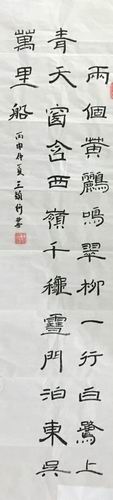 兩個黃鸝鳴翠柳一行白鷺上
青天窗含西嶺千穐雪門泊東吳
萬里船
丙申仲夏